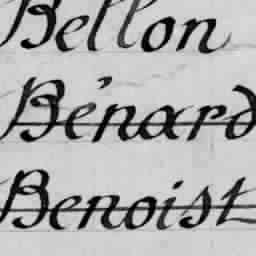 Bellon
Bénard
Benoist